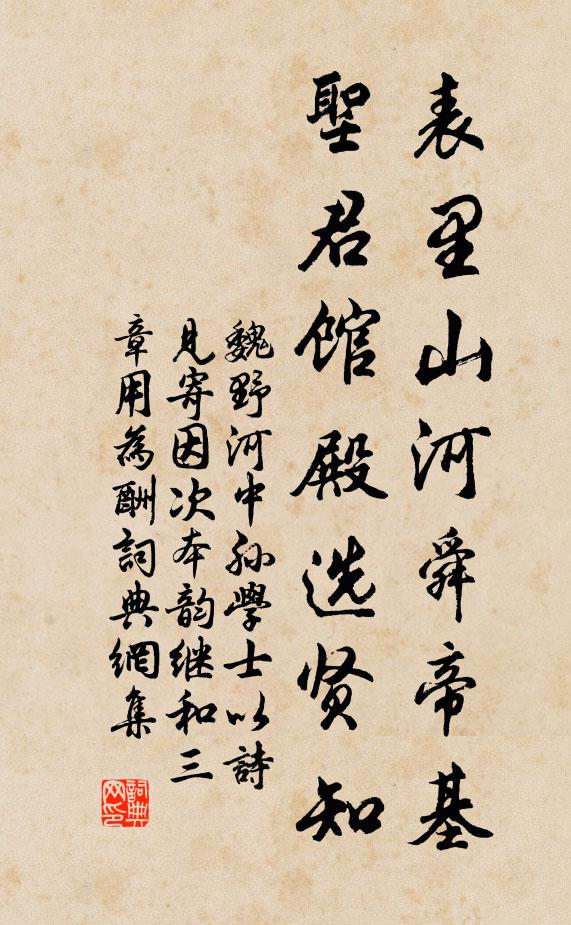 表里山河舜帝基
聖君馆殿选贤知
魏野河中孙學士以詩
見寄因次本韵继和三
章用為酬詞典網集
詞典
网印